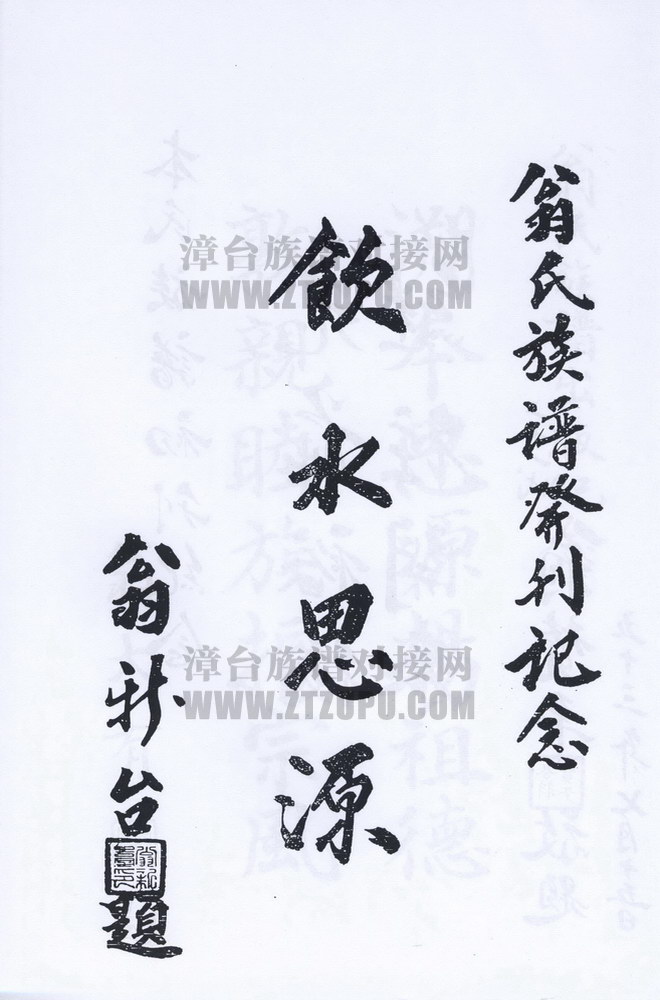 翁氏族譜發刊記念
飲水思源
翁新台題
翁新臺印
漳台族谱对接网
WWW.ZTZUPU.COM
漳台族谱对接网
WWW.ZTZUPU.COM